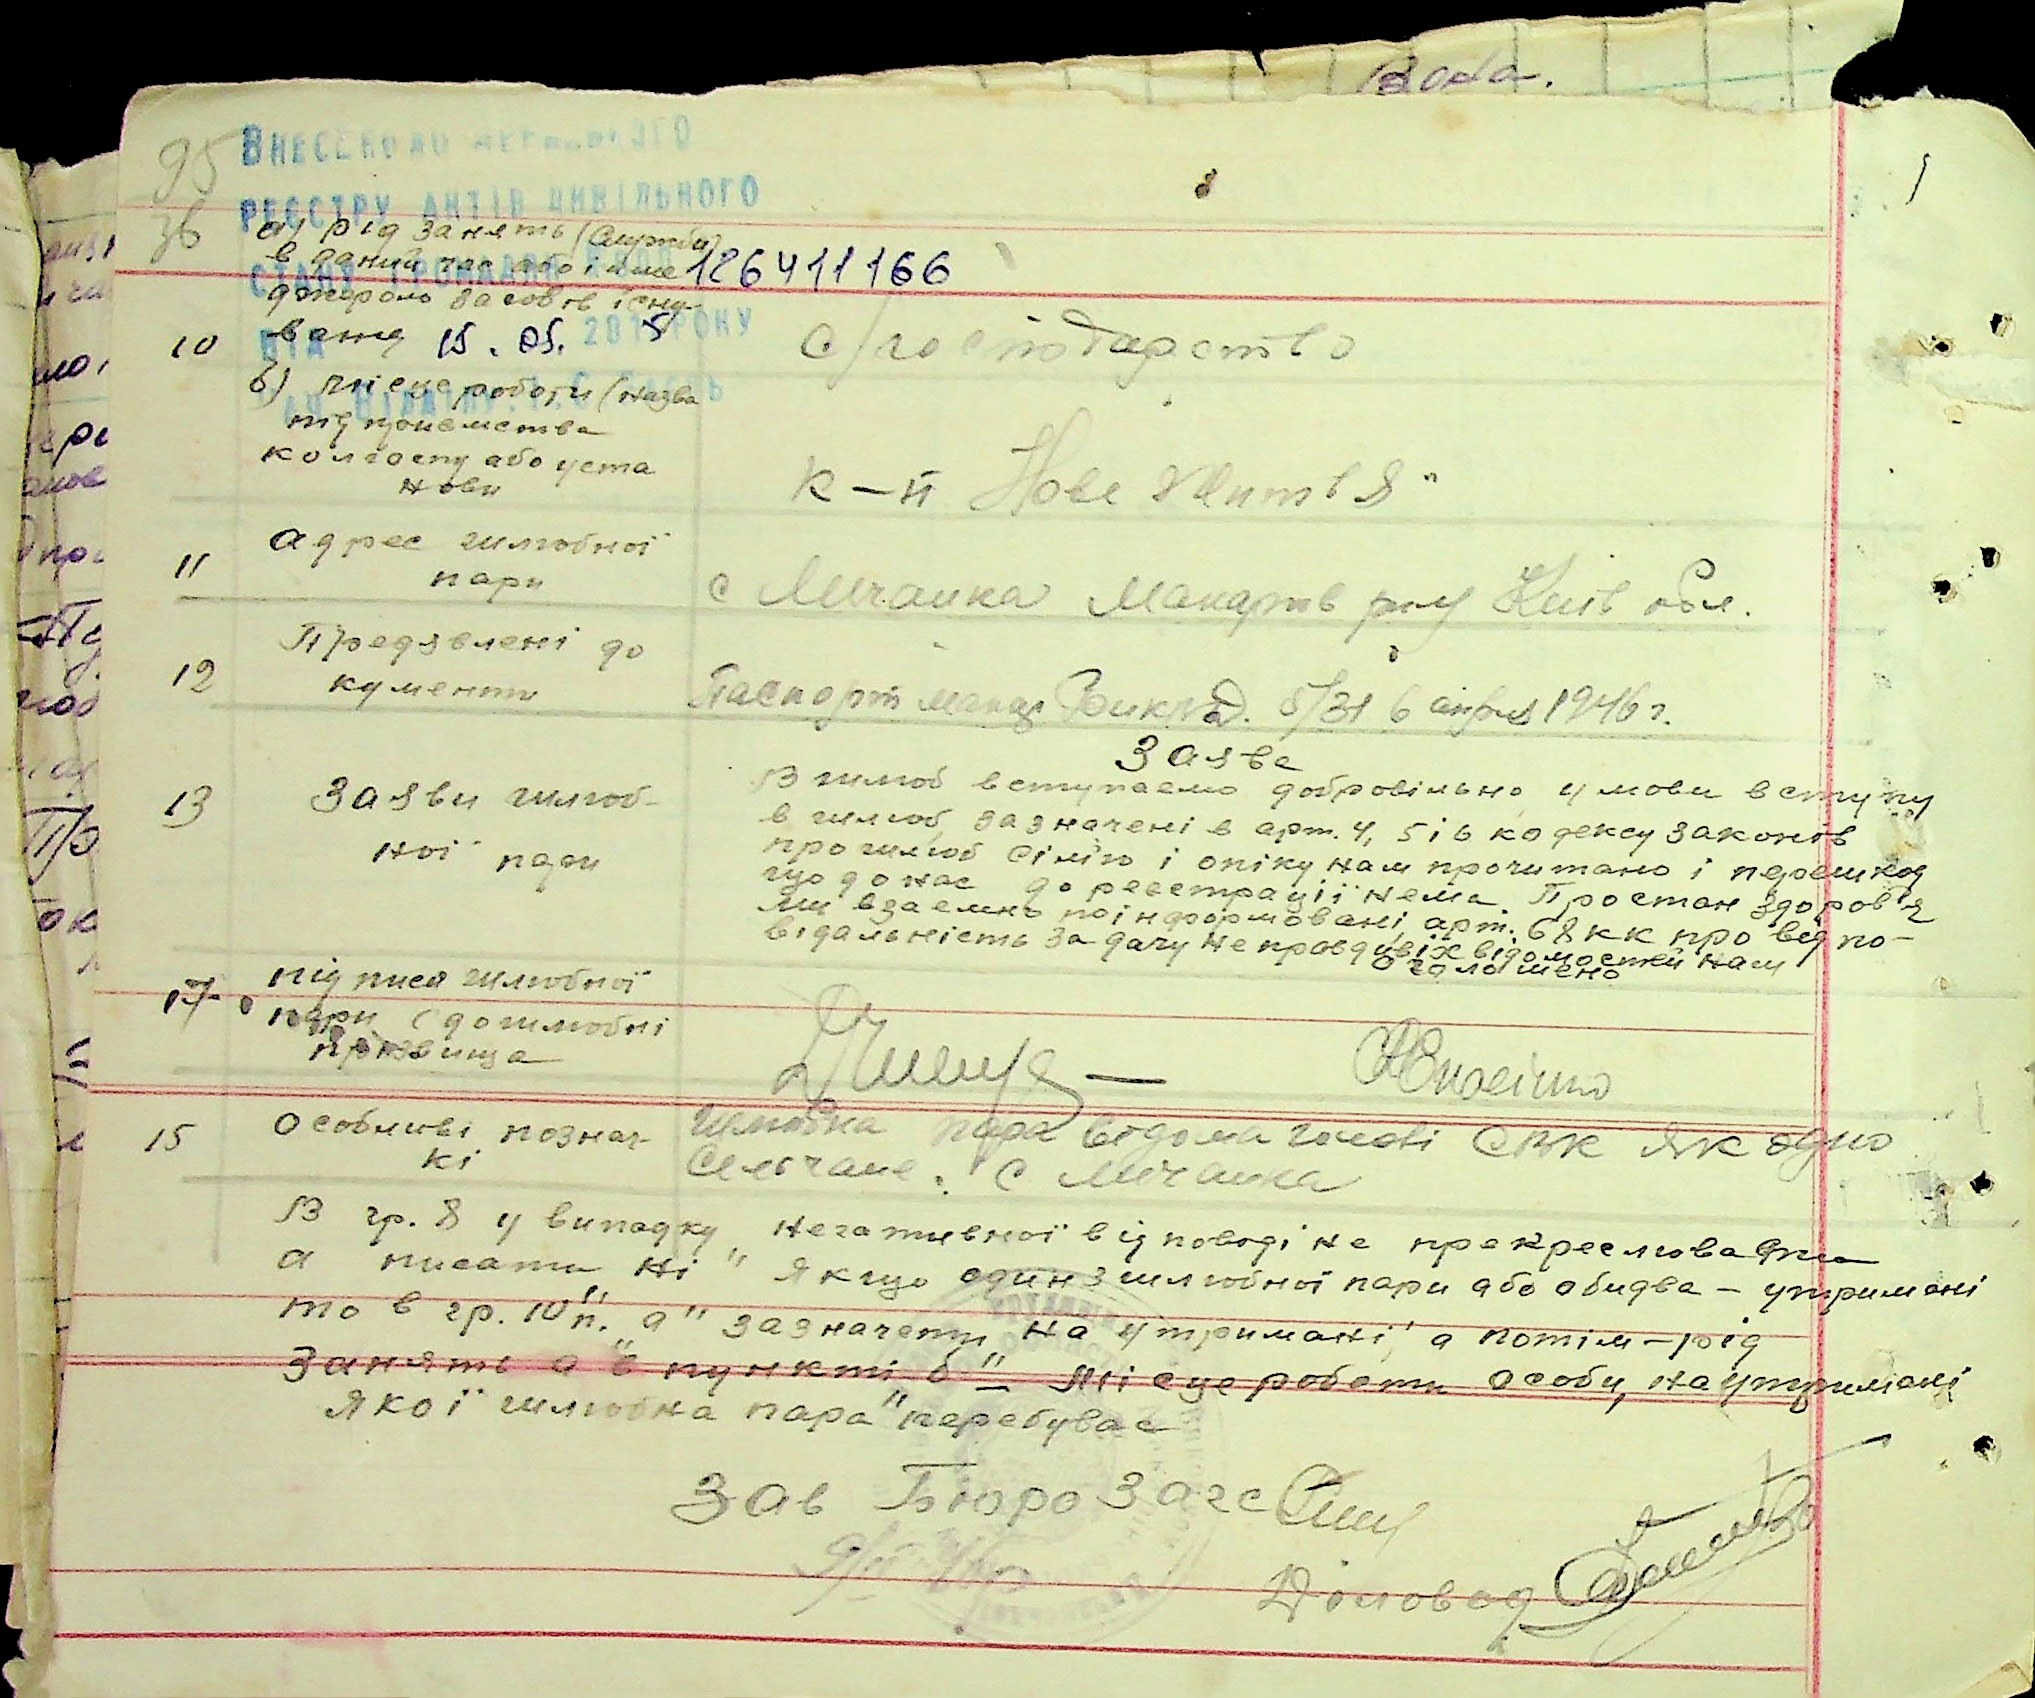 Вона.
95
36
Внесено до Державного
реєстру актів цивільного
стану громадян
126411166
15.05. 2015 року
10
а) рід занять (служби)
в даний час або інше
джерело засобів існу-
вання
с/господарство
б) місце роботи (назва
підприємства
колгоспу або уста
нови
к-п Нове життя"
11
Адрес шлюбної
пари
с Мичанка Макарів р-ну Київ обл.
12
Предявлені до
кументи
Паспорт 6 апреля 1946 г.
13
Заяви шлюб-
ної пари
Заява
В шлюб вступаємо добровільно, умови вступу
в шлюб, зазначені в арт. 4, 5 і 6 кодексу законів
про шлюб сімю і опіку нам прочитано і перешкод
що до нас до реєстрації нема. Про стан здоров'я
ми взаємно поінформовані, арт. 68 кк про відпо-
відальність за дачу неправдивіх відомостей нам
оголошено
підписи шлюбної
пари (дошлюбні
прізвища
15
Особливі познач-
кі
Шлюбна пара відома голові як одно
сельчане. с Мічанка
В гр. 8 у випадку негативної відповіді не прекреслювати
а писати ні" якщо один з шлюбної пари або обидва – утримані
то в гр. 10 п. а" зазначети на утримані, а потім – рід
занять а в пункті б" – місце роботи особи, на утримані
якої шлюбна пара" перебуває
Зав Бюро Загс
Діловод